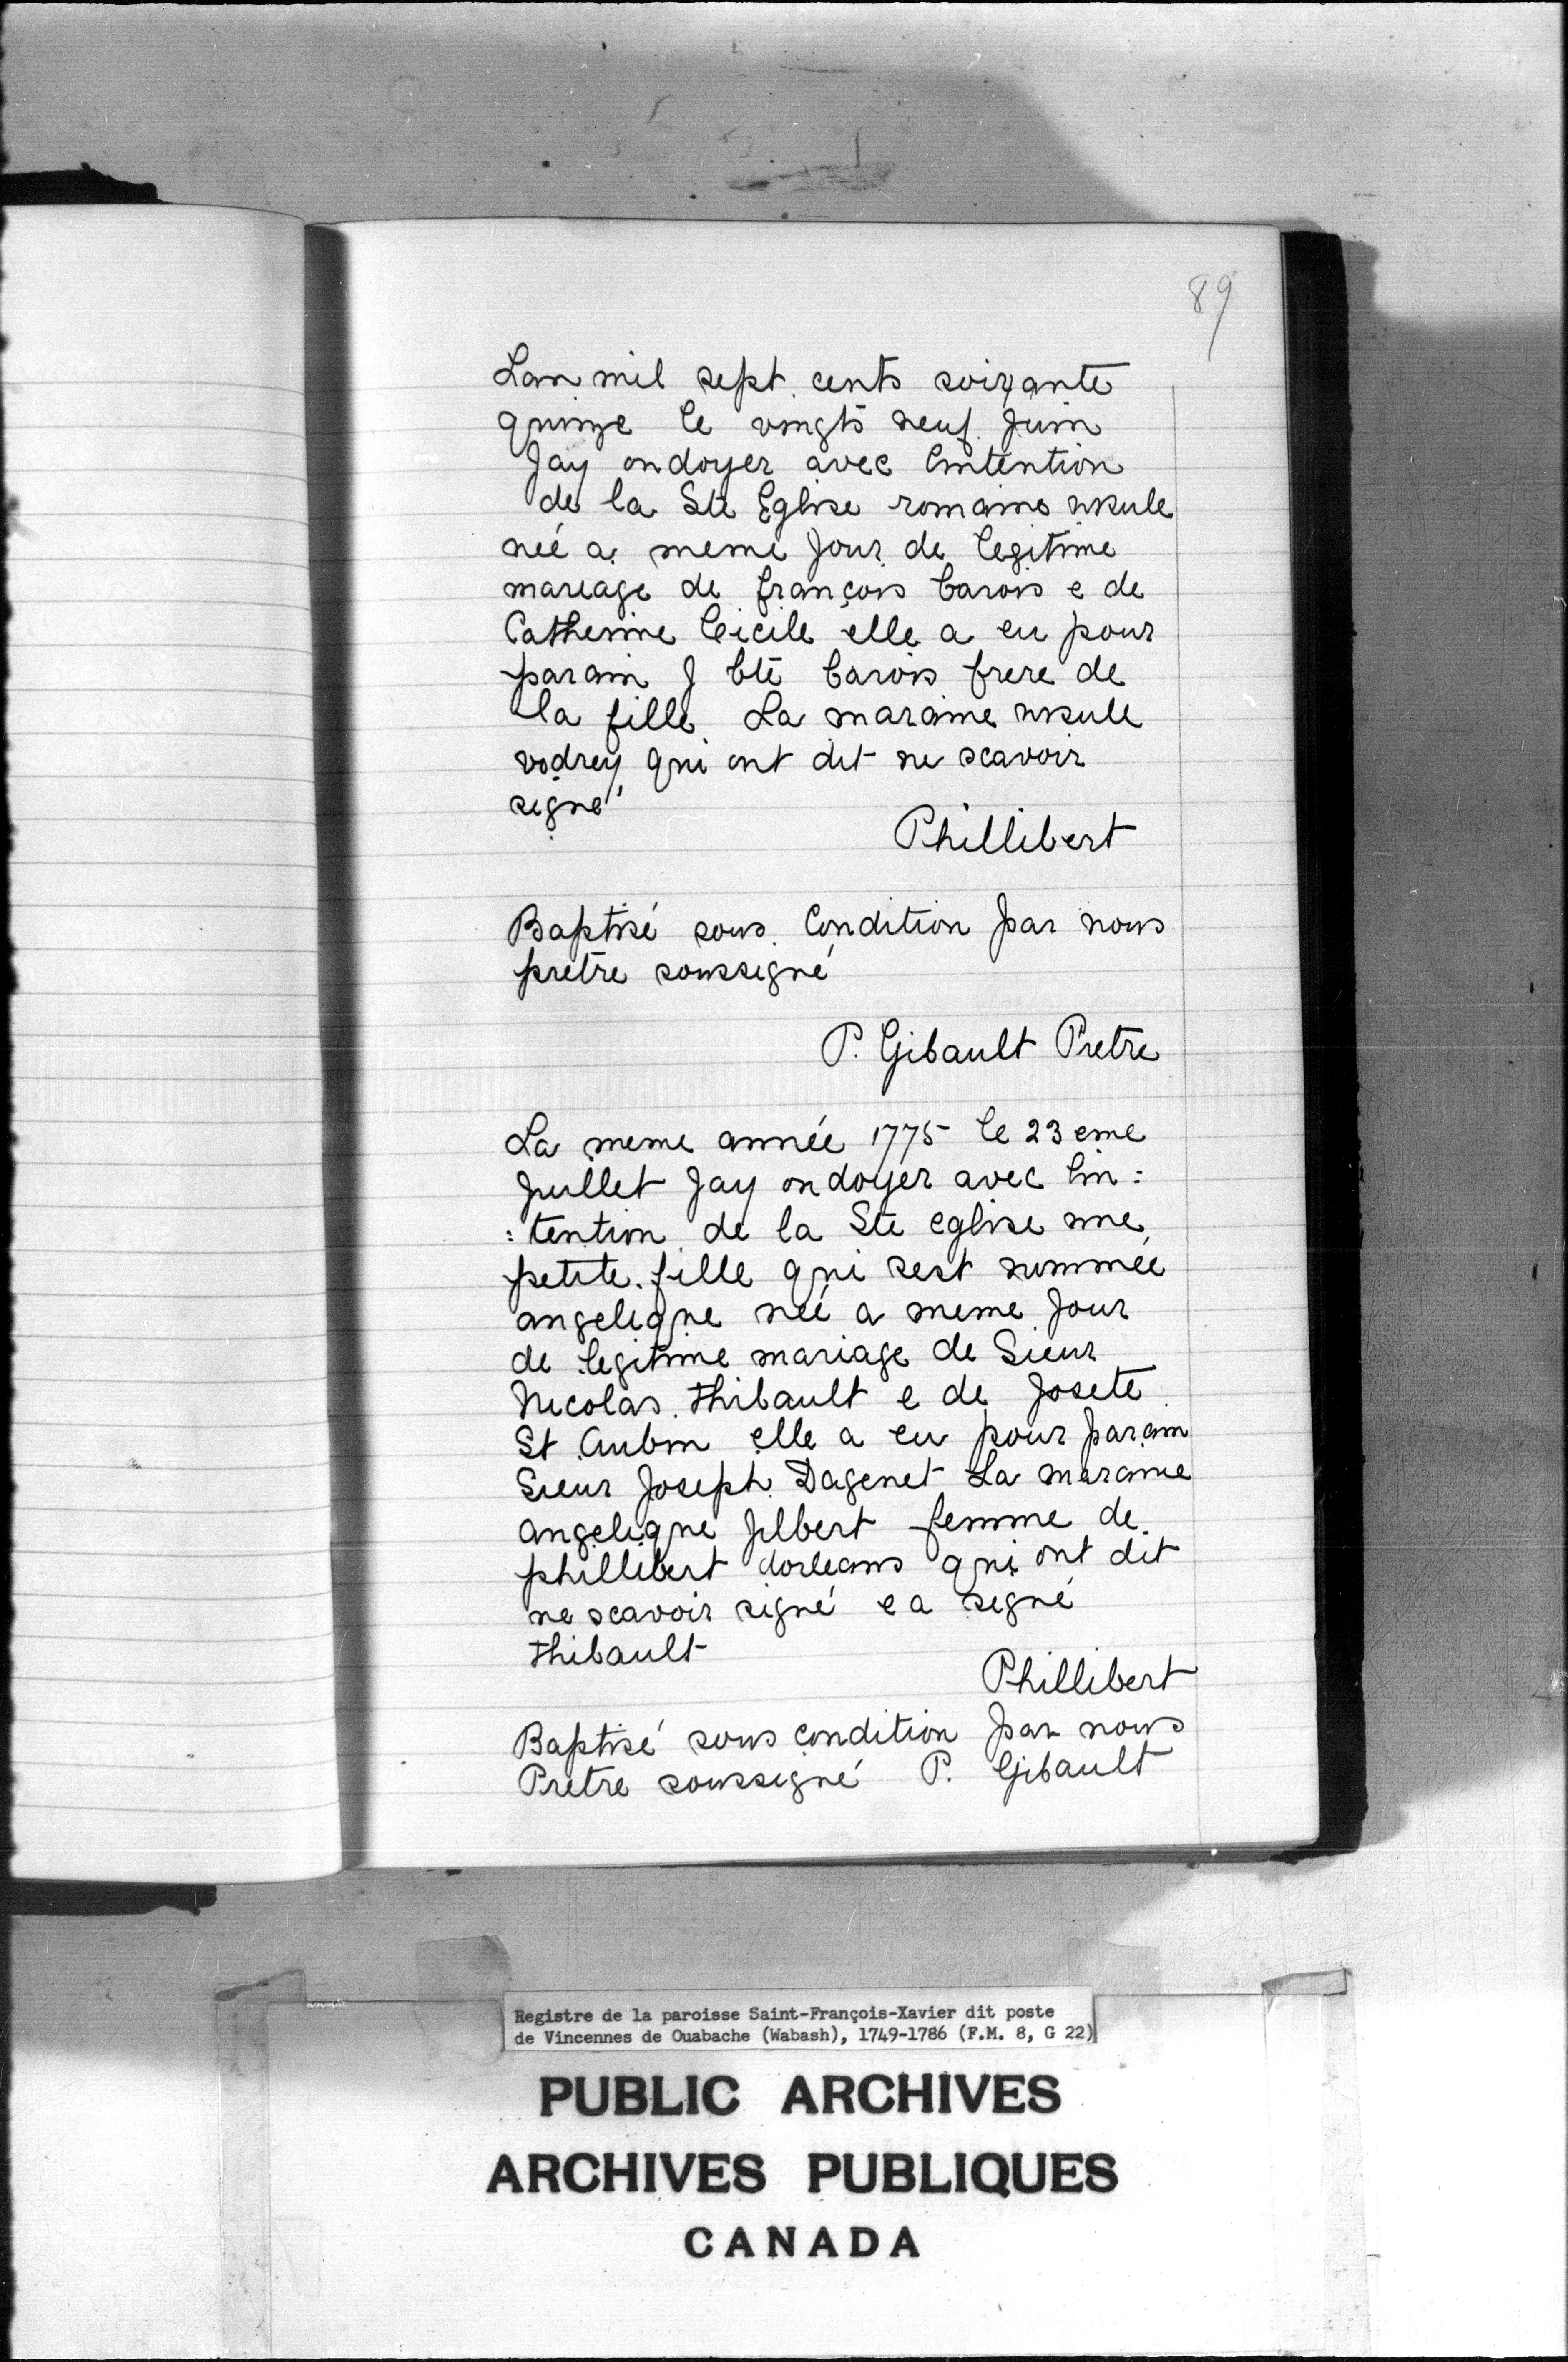 89
Lan mil sept cents soixante
quinze le vingts neuf Juin
Jay ondoyer avec lintention
de la Ste Eglise romaine ursule
née a meme Jour de legitime
mareage de françois barois e de
Catherine Cicile elle a eu pour
parain J bte barois frere de
la fille La maraine ursule
vodrey qui ont dit ne scavoir
signé
Phillibert
Baptisé sous Condition par nous
pretre soussigné
P. Gibault Pretre
La meme année 1775 le 23 eme
Juillet Jay ondoyer avec lin:
:tention de la Ste eglise une
petite fille qui sest nommée
angelique née a meme Jour
de legitime mariage de Sieur
Nicolas thibault e de Josete
St Aubin elle a eu pour parain
Sieur Joseph Dagenet La maraine
angelique Jilbert femme de
phillibert dorleans qui ont dit
ne scavoir signé e a signé
thibault
Phillibert
Baptisé sous condition par nous
Pretre soussigné P. Gibault
Registre de la paroisse Saint-François-Xavier dit poste
de Vincennes de Ouabache (Wabash), 1749-1786 (F.M. 8, G 22)
PUBLIC ARCHIVES
ARCHIVES PUBLIQUES
CANADA